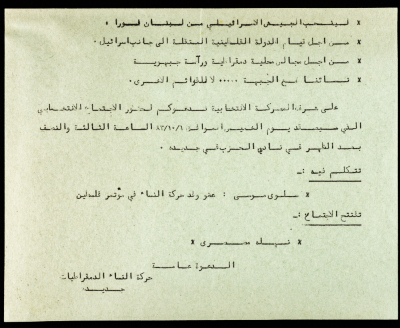 x لينسحب الجيش الاسرائيلي من لبنان فورا •
x من اجل قيام الدولة الفلسطينية المستقلة الى جانب اسرائيل •
x من اجل مجالس محلية دمقراطية ورآسة جبهوية
x نسائنا مع الجبهة ..... لا للقوائم الاخرى •
على شرف المعركة الانتخابية ندعوكم لحضور الاجتماع الانتخابي
الذي سيعقد يوم الخميس الموافق ٨٣/١٠/٦ الساعة الثالثة والنصف
بعد الظهر في نادي الحزب في جديدة •
تتكلم فيه :ـ
x سلوى موسى : عضو وفد حركة النساء في مؤتمر فلسطين
تفتتح الاجتماع :ـ
x نبيله x
الدعوة عامة
حركة النساء الدمقراطيات
جديدة